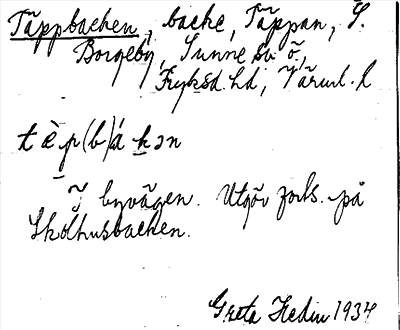 Täppbacken, backe, Täppan, S.
Borgeby, Sunne sn ö.,
Fryksd. hd, Värml. l
t è p(b)á kən
I byvägen. Utgör forts. på
Skolhusbacken.
Greta Hedin 1934